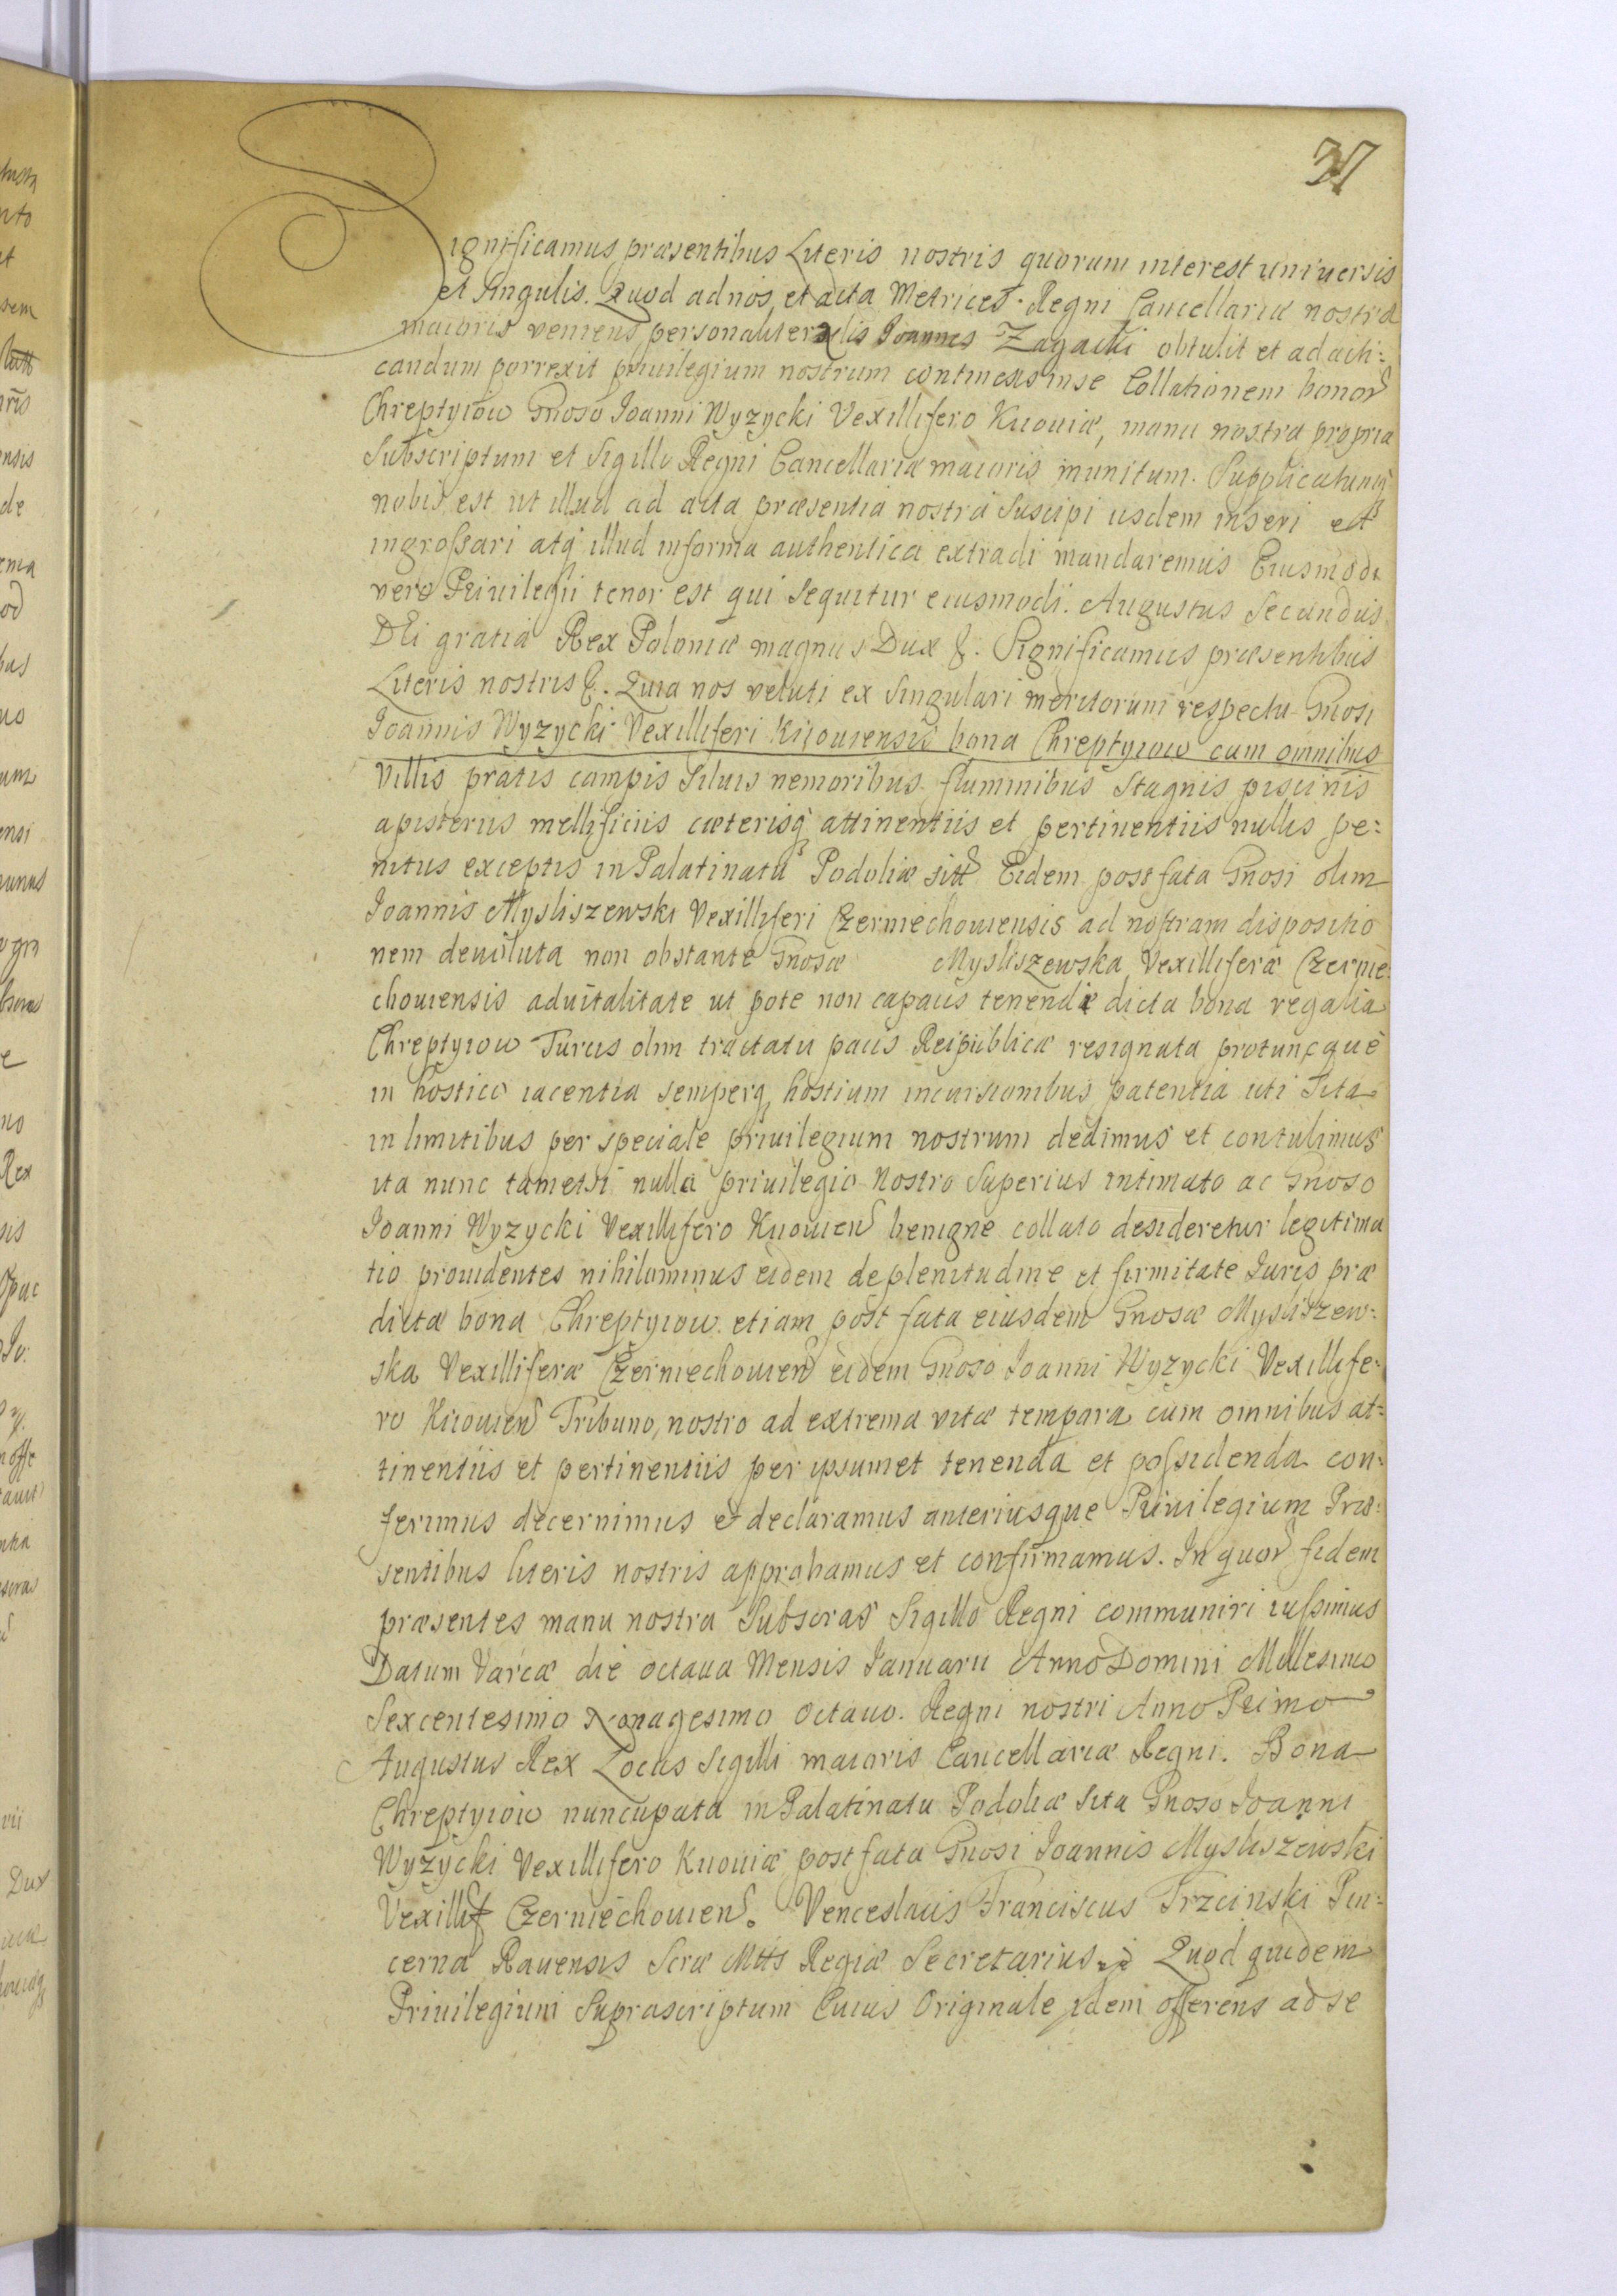 37
Significamus præsentibus Literis nostris quorum interest universis
et Singulis. Quod ad nos, et acta Metrices Regni Cancellariæ nostræ
maioris veniens personaliter Nlis Joannes Zagacki obtulit et ad acti:
candum porrexit priuilegium nostrum continens in se Collationem bonor
Chreptyiow Gnoso Joanni Wyzycki Vexillifero Kiiouiæ, manu nostra propria
Subscriptum et Sigillo Regni Cancellariæ maioris munitum. Supplicatumq
nobis est ut illud ad acta præsentia nostra Suscipi iisdem inseri et
ingrossari atq illud in forma authentica extradi mandaremus Eiusmodi
vero Priuilegii tenor est qui Sequitur eiusmodi. Augustus Secundus
DEi gratia Rex Poloniæ magnus Dux &. Significamus præsentibus
Literis nostris &. Quia nos veluti ex Singulari meritorum respectu Gnosi
Joannis Wyzycki Vexilliferi Kijouiensis bona Chreptyiow cum omnibus
Villis pratis campis Siluis nemoribus fluminibus Stagnis piscinis
apisteriis mellificiis cæterisq attinentiis et pertinentiis nullis pe:
nitus exceptis in Palatinatu Podoliæ sitt Eidem post fata Gnosi olim
Joannis Mysliszewski Vexilliferi Czerniechouiensis ad nostram dispositio
nem deuoluta non obstante Gnosæ Mysliszewska Vexilliferæ Czernie:
chouiensis aduitalitate ut pote non capacis tenendi dicta bona regalia
Chreptyiow Turcis olim tractatu pacis Reipublicæ resignata protuncque
in hostico iacentia semperq hostium incursionibus patentia uti Sita
in limitibus per speciale priuilegium nostrum dedimus et contulimus
ita nunc tametsi nulla priuilegio Nostro Superius intimato ac Gnoso
Joanni Wyzycki Vexillifero Kiiouien benigne collato desideretur legitima
tio prouidentes nihilominus eidem de plenitudine et firmitate Juris præ
dicta bona Chreptyiow etiam post fata eiusdem Gnosæ Mysliszew:
ska Vexilliferæ Czerniechouien eidem Gnoso Joanni Wyzycki Vexillife:
ro Kiiouien Tribuno, nostro ad extrema vitæ tempora cum omnibus at:
tinentiis et pertinentiis per ipsummet tenenda et possidenda con:
ferimus decernimus & declaramus anteriusque Priuilegium Præ:
sentibus literis nostris approbamus et confirmamus. In quor fidem
præsentes manu nostra Subscras Sigillo Regni communiri iussimus
Datum Varcæ die octaua Mensis Januarii Anno Domini Millesimo
Sexcentesimo Nonagesimo Octauo. Regni nostri Anno Primo
Augustus Rex Locus Sigilli maioris Cancellariæ Regni. Bona
Chreptyiow nuncupata in Palatinatu Podoliæ Sita Gnoso Joanni
Wyzycki Vexillifero Kiiouiæ post fata Gnosi Joannis Mysliszewski
Vexillif Czerniechouien. Venceslaus Franciscus Trzcinski Pin:
cerna Rauensis Scræ Mttis Regiæ Secretarius Quod quidem
Priuilegium Suprascriptum Cuius Originale idem offerens ad se